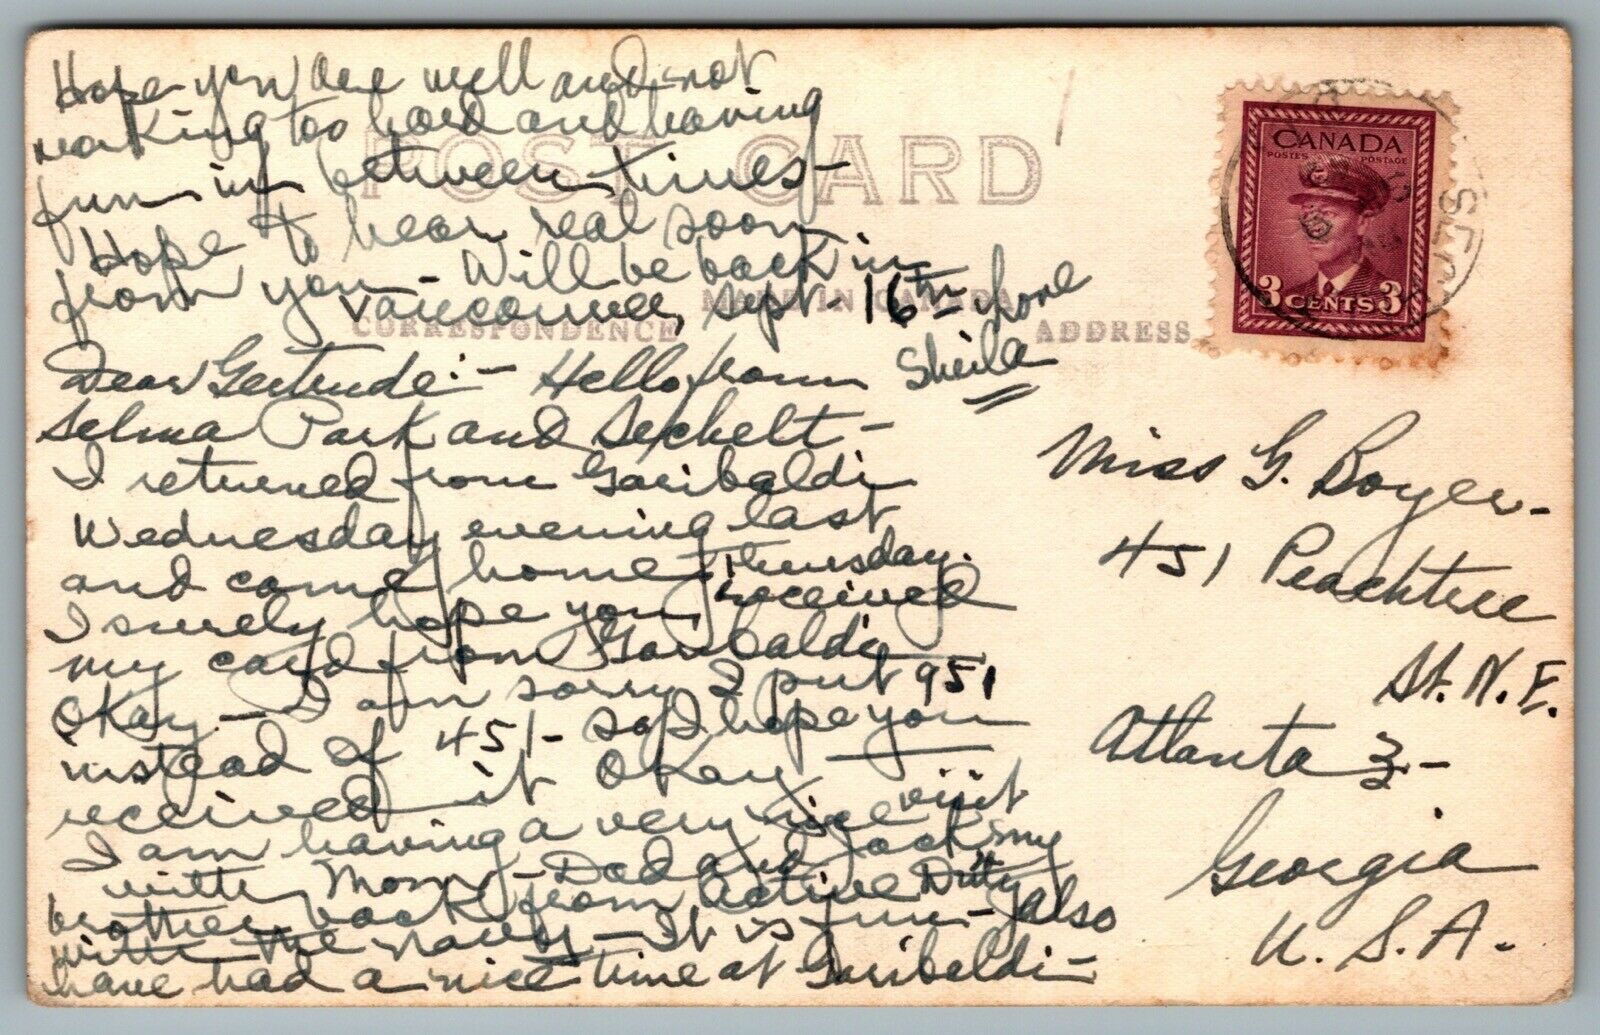 Hope you are well and not
working too hard and having
fun in between times-
Hope to hear real soon
from you- Will be back in
Vancouver, Sept- 16th- Love
Sheila
POST CARD
MADE IN CANADA
CORRESPONDENCE
ADDRESS
Dear Gertrude:- Hello from
Selma Park and Sechelt-
I returned from Garibaldi
Wednesday evening last
and came home Thursday.
I surely hope you received
my card from Garibaldi
Okay- I am sorry I put 951
instead of 451- So I hope you
received it Okay-
I am having a very nice visit
with Mom- Dad and Jack my
brother back from active Duty
with the navy- It is fun- also
have had a nice time at Garibaldi-
CANADA
POSTES POSTAGE
3 CENTS 3
SEP
Miss G. Boyer-
451 Peachtree
St. N.E.
Atlanta 3-
Georgia
U.S.A-